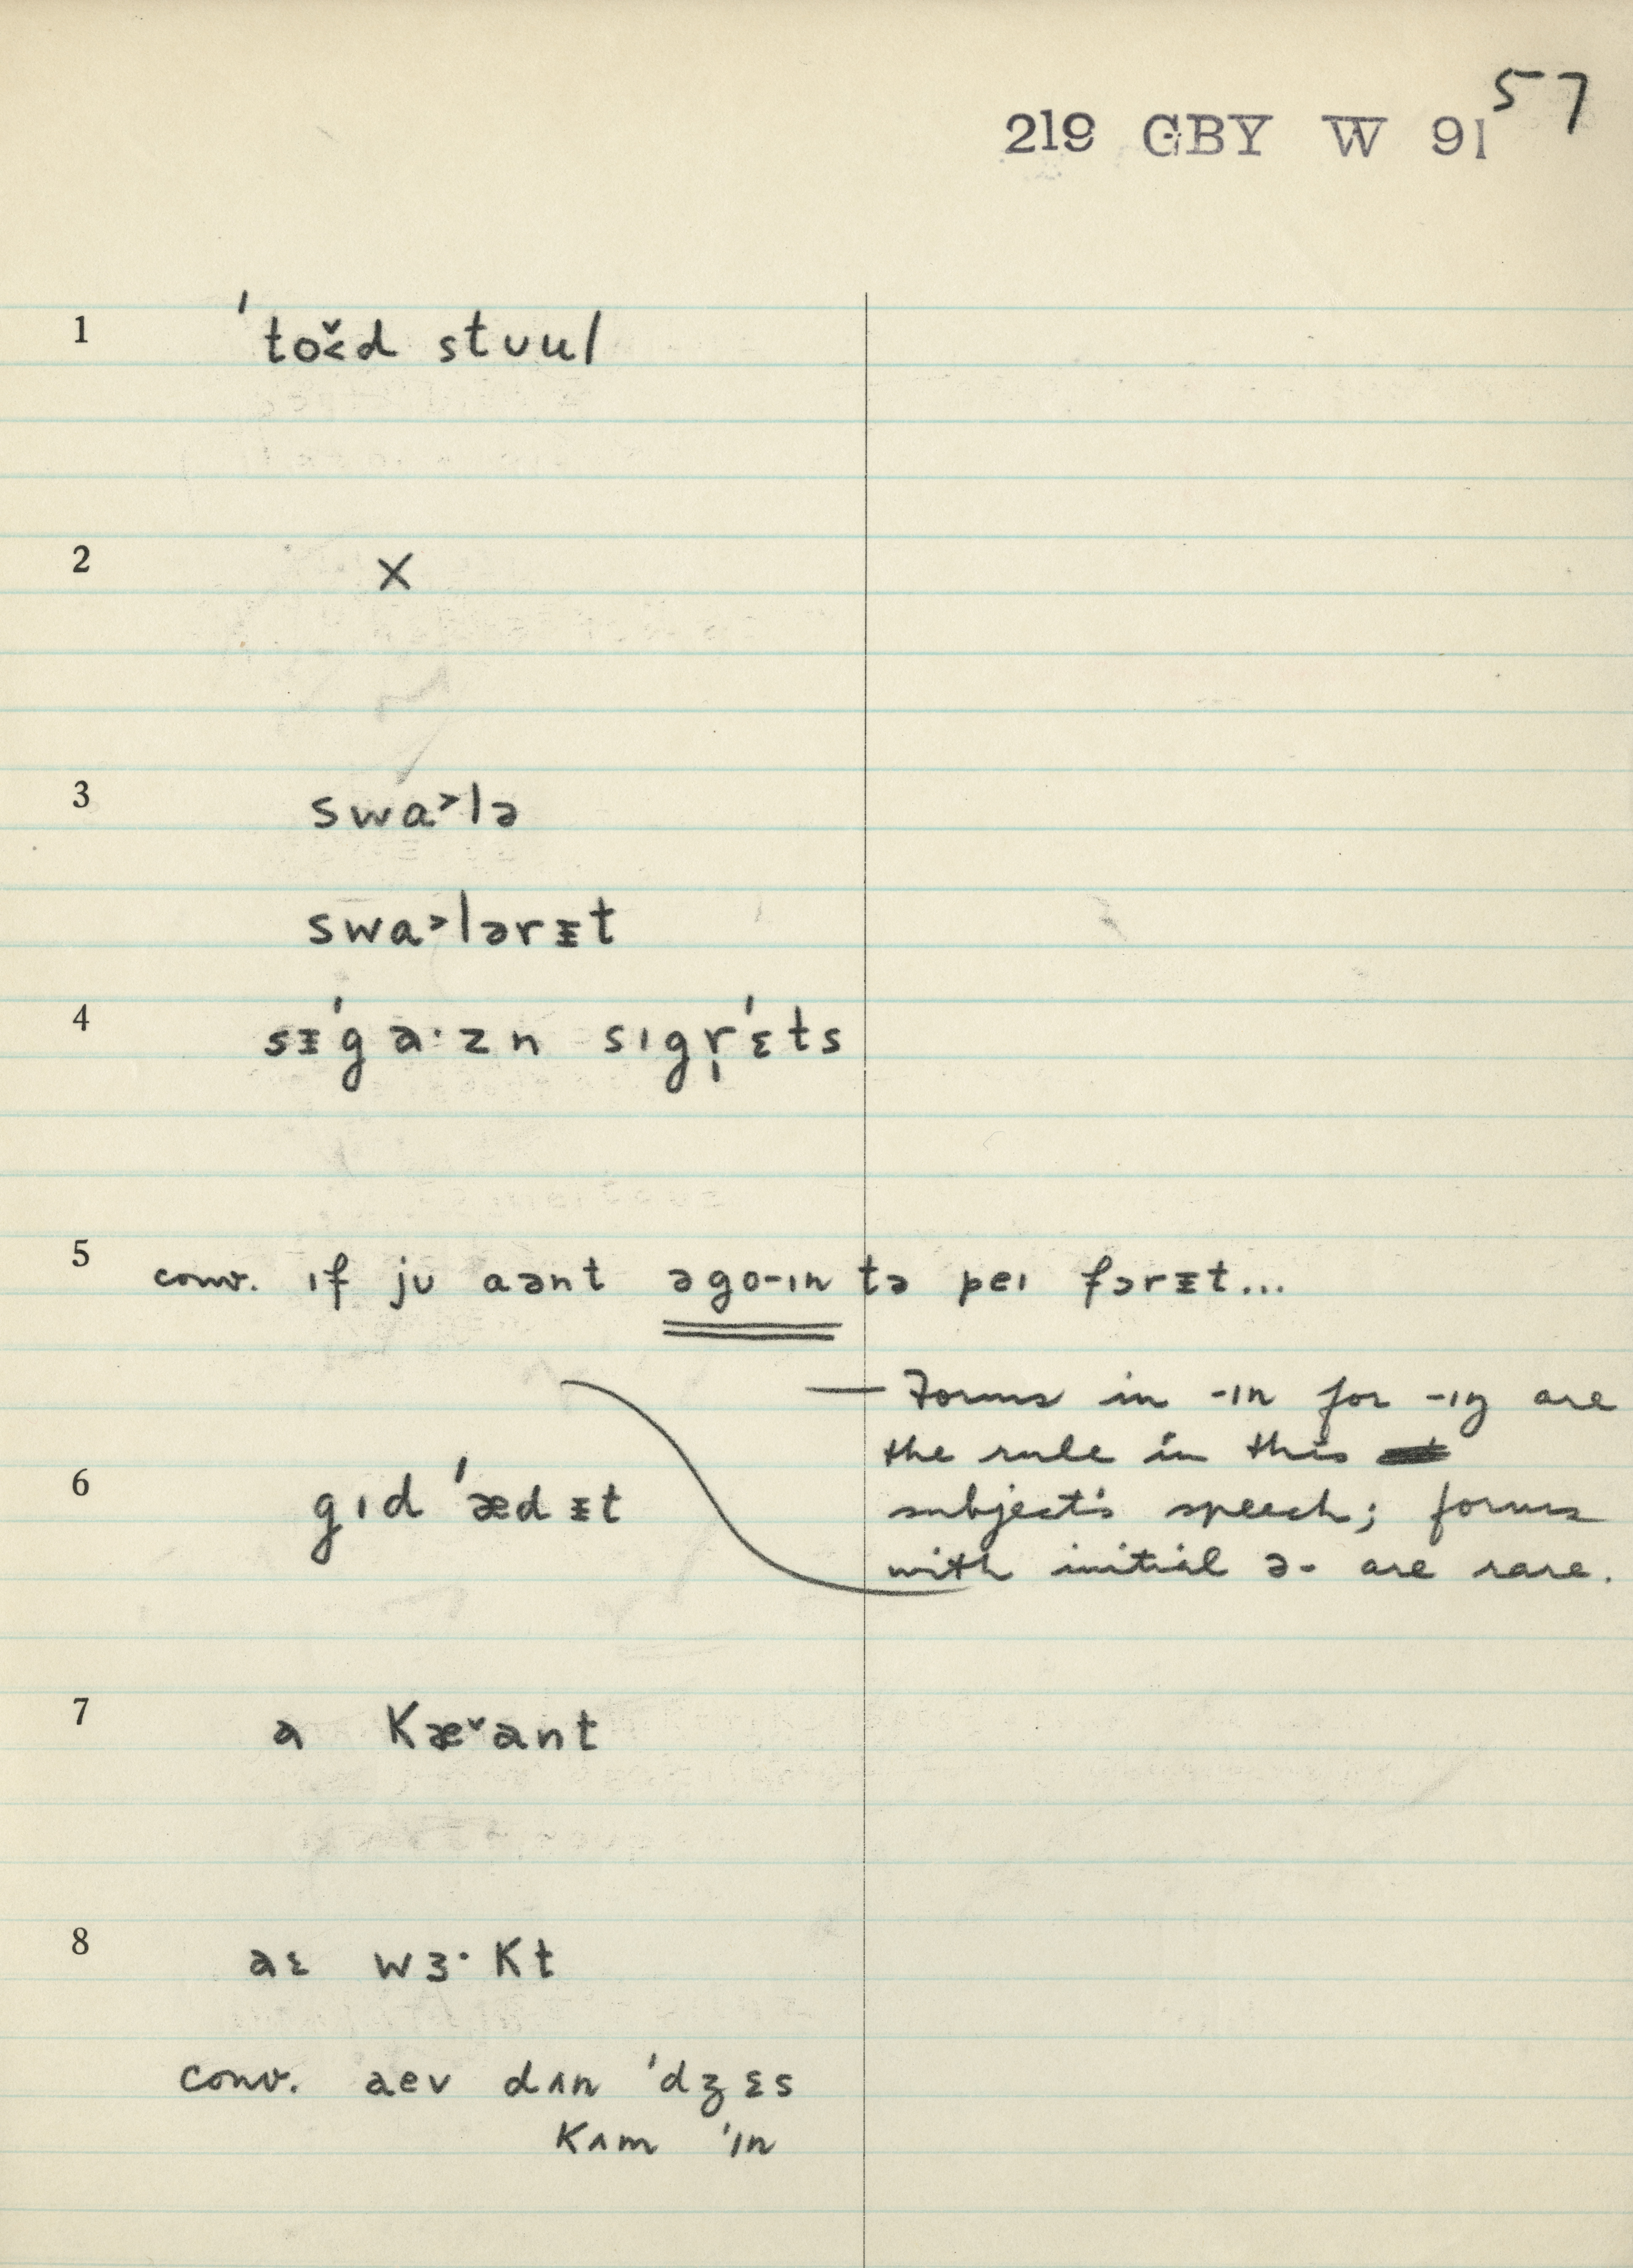 57
219 GBY W 91
1 ˈtoɤ̆d stʊul
2 X
3 swa˃lə
swa˃lərᵻt
4 sᵻˈga·zn sɪgr̩ˈɛts
5 conv. ɪf jʊ aənt əgo-ɪn tə peɪ fɔrᵻt...
— Forms in -ɪn for -ɪŋ are
the rule in this
subject's speech; forms
with initial ə- are rare.
6 gɪd ˈædᵻt
7 a kæ˅ant
8 aɛ wɜ·kt
conv. aev dʌn ˈdʒɛs
kʌm ˈɪn